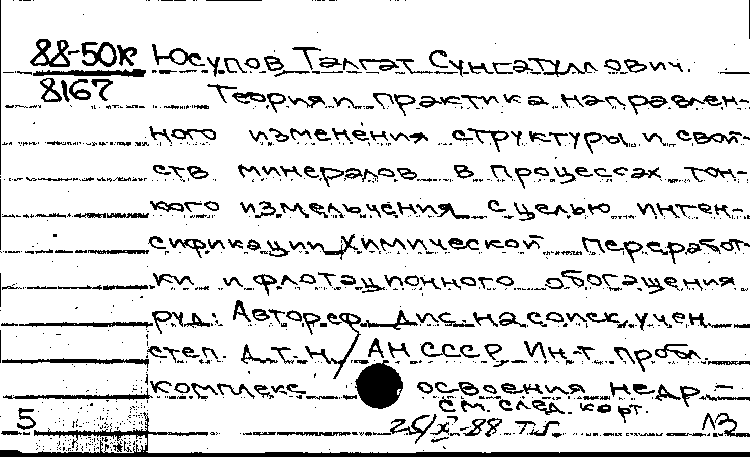 88-50к Юсупов Талгат Сунгатуллович.
8167 Теория и практика направлен-
ного изменения структуры и свой-
ств минералов в процессах тон-
кого измельчения с целью интен-
сификации химической переработ-
ки и флотационного обогащения
руд: Автореф. дис. на соиск. учен.
степ. д.т.н. / АН СССР, Ин-т пробл.
комплекс освоения недр. -
см. след. карт.
5 26/X-88 т.г.